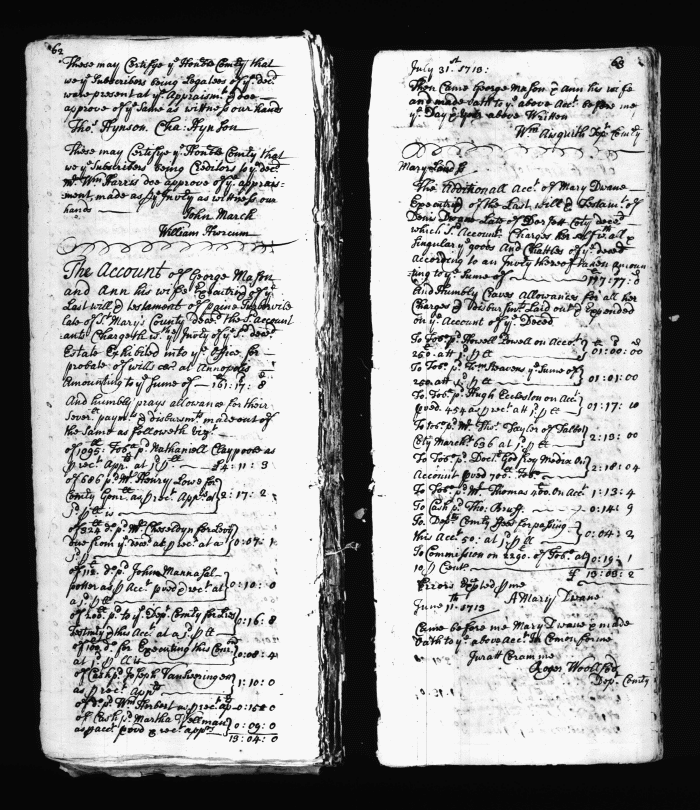 62
These may Certifye ye Honble Comty that
we ye Subscribers being Legatees of ye decd
were present at ye Appraismt & doe
approve of ye Same as wittness our hands
Thos Hynson. Cha: Hynson
These may Certifye ye Honble Comty that
we ye Subscribers being Creditors to ye decd
Mr Wm Harris doe approve of ye apprais-
ment, made as pr Invty as wittness our
hands
John March
William
The Account of George Mason
and Ann his wife Executrix of ye
Last will & testament of
late of St Mary's County Decd. the sd Account
ants Chargeth is. ye Invty of ye sd decd
Estate Exhibited into ye Office for
probate of wills &c at Annapolis
Amounting to ye Sume of 161: 17: 8
And humbly prays allowance for their
Severll paymts & disbursmts made out of
the Same as followeth vizt
of 1095: Tobo pd Nathaniell Claypoole as
p rect Appr at 1d p lb 4: 11: 3
of 686 pd Mr Henry Lowe for
Comty Genll as p rect Appr at 2: 17: 2
1d p lb is
of 32 lb do pd Mr Cheseldyn for Levy
due from ye decd as p rect at a 0: 07: 1
of 112. do pd John Mannasal-
potter as p Acct provd & rect at 0: 10: 0
a 1d p lb
of 200. pd to ye Depy Comty for 0: 16: 8
Testmty & this Acct at a 1d p lb
of 100 do for Executing this 0: 08: 4
at 1d p lb is
of Cash pd Joseph Vanhesingen 1: 10: 0
as p rect Appr
of do pd Wm Herbert as p rect ap 0: 15: 0
of Cash pd Martha Wellman 0: 09: 0
as p acct provd & rect appr
13: 04: 0
63
July 31st 1713:
Then Came George Mason & Ann his wife
and made oath to ye above Acct before me
ye Day & year above Written
Wm Aisquith Depy Comty
Maryland ss
The Additionall Acct of Mary Dwane
Executrix of the Last will & Testamt of
Denis Dwane Late of Dorsett Coty decd
which sd Account. Charges her self wth all &
Singular ye goods And Chattles of ye decd
according to an Invty thereof taken amoun
ting to ye Sume of 177: 17: 0
And Humbly Craves Allowances for all her
Charges & Disbursmts Laid out & Expended
on ye Account of ye Deced
To Tobo pd Howell Powell on Acct
250. att 1d p lb 01: 00: 00
To Tobo pd Tom Heavens ye Sume of
250 att 1d p lb 01: 01: 00
To Tobo pd Hugh Eccleston on Acct
proved. 454 as p rect at 1d p lb 01: 17: 10
To tobo pd Mr Thos Taylor of Talbot
Coty Marcht 636 at 1d p lb 2: 13: 00
To Tobo pd Doctr God on
Account provd 700 lb Tobo 2: 18: 04
To Tobo pd Mr Thomas on Acct 1: 13: 4
To Cash pd Tho: Bruff. 0: 14: 9
To Depty Comty ffees for passing
this Acct 50: at 1d p lb 0: 04: 2
To Commission on 2290. of Tobo at 0: 19: 1
10 p Cent
13: 03: 2
Errors Excepted p me
June 11th 1713 Mary Dwane
Came before me Mary Dwane & made
oath to ye above Acct in Comon forme
Juratt Coram me
Roger Woolford
Depy Comty